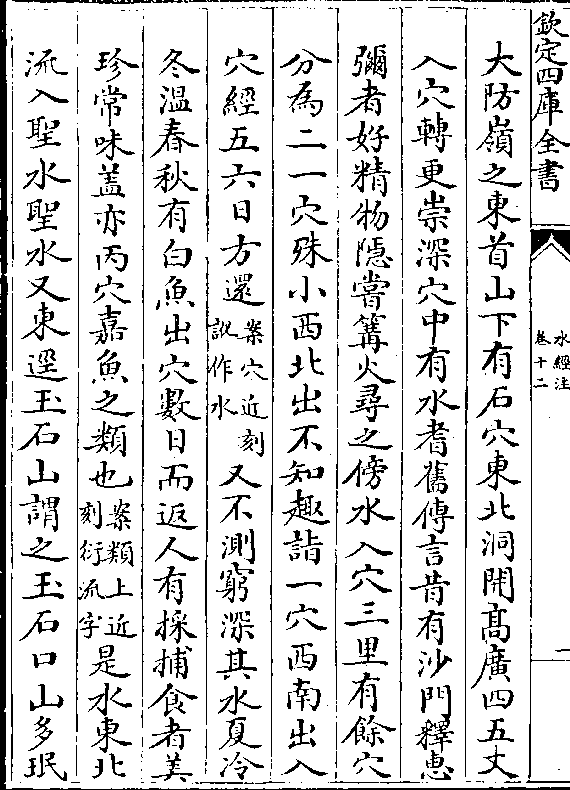 欽定四庫全書
水經注
卷十二
一
大防嶺之東首山下有石穴東北洞開髙廣四五丈
入穴轉更崇深穴中有水耆舊傳言昔有沙門釋惠
彌者好精物隱嘗篝火尋之傍水入穴三里有餘穴
分為二一穴殊小西北出不知趣詣一穴西南出入
穴經五六日方還案穴近刻訛作水又不測窮深其水夏冷
冬溫春秋有白魚出穴數日而返人有採捕食者美
珍常味蓋亦丙穴嘉魚之類也案類上近刻衍流字是水東北
流入聖水聖水又東逕玉石山謂之玉石口山多珉